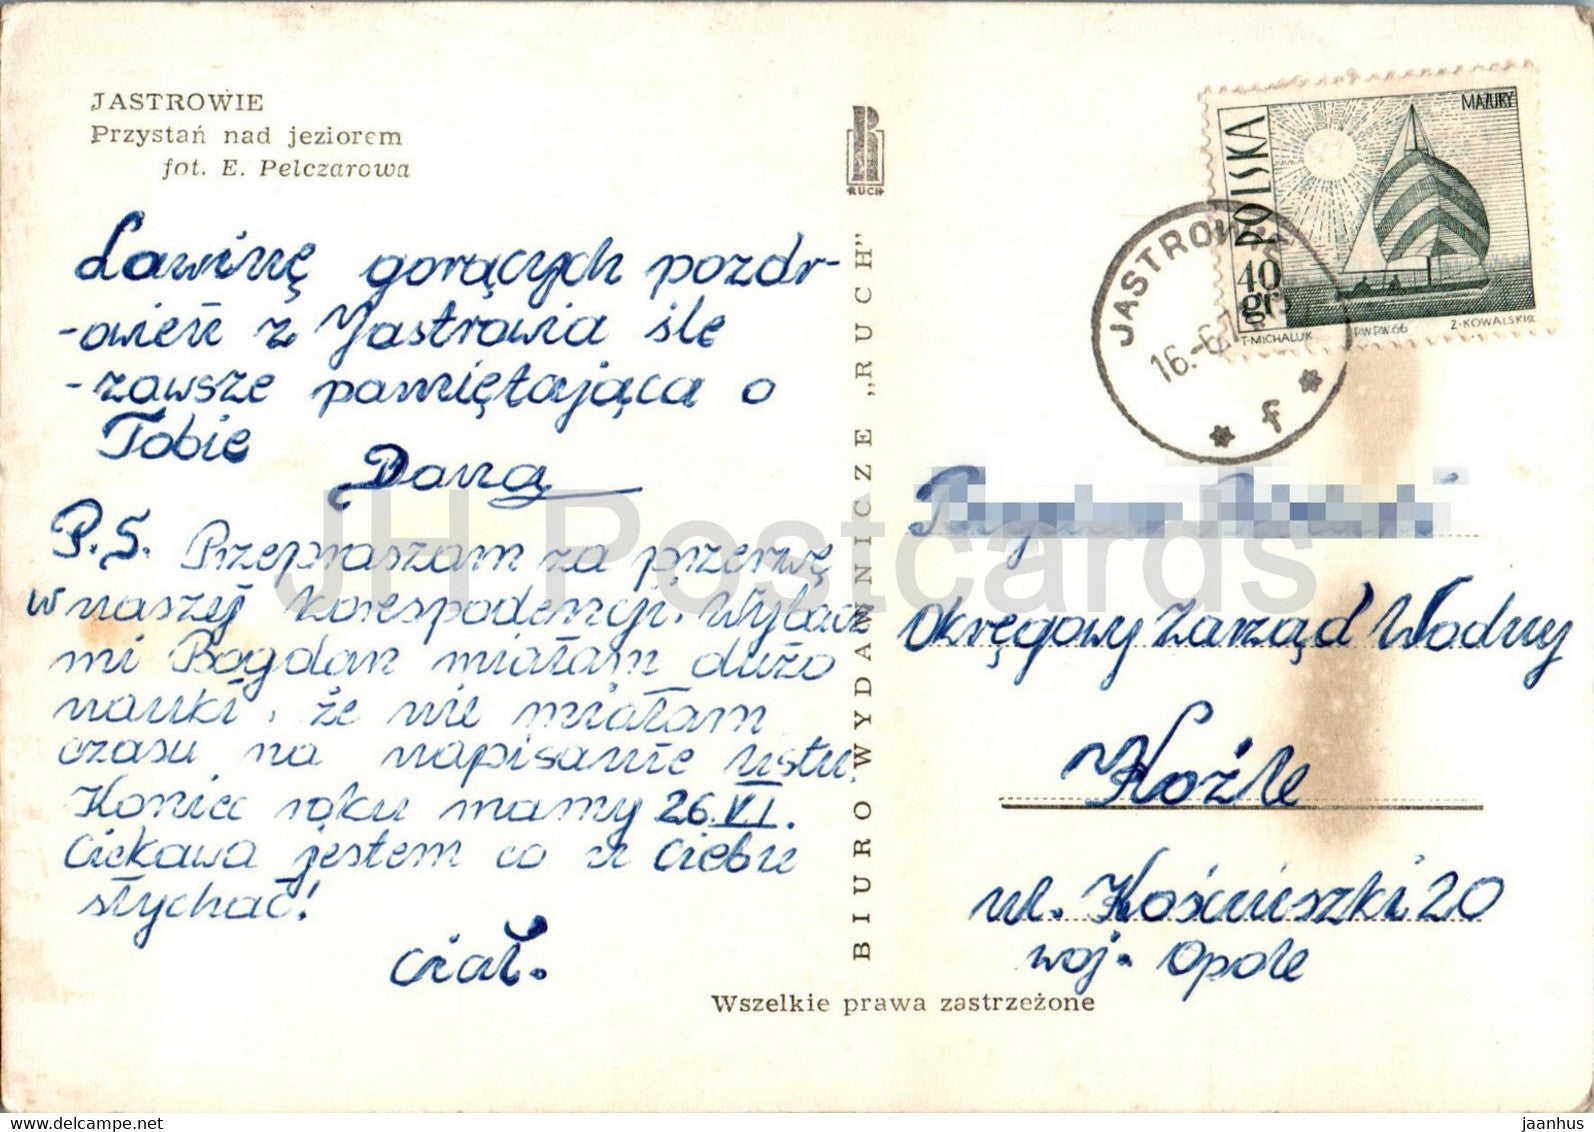 JASTROWIE
Przystań nad jeziorem
fot. E. Pelczarowa
Lawinę gorących pozdr-
-owień z Jastrowia śle
-zawsze pamiętająca o
Tobie
Dana
P.S. Przepraszam za przerwę
w naszej korespodencji. Wybacz
mi Bogdan miałam dużo
nauki, że nie miałam
czasu na napisanie listu.
Koniec roku mamy 26.VI.
Ciekawa jestem co u Ciebie
słychać!
RUCH
BIURO WYDAWNICZE „RUCH”
Wszelkie prawa zastrzeżone
POLSKA
40
gr
MAZURY
T. MICHALUK
PWPW. 66
Z. KOWALSKI sc.
JASTROWIE
16.-6
f
Okręgowy Zarząd Wodny
Koźle
ul. Kościuszki 20
woj. Opole
JH Postcards
www.delcampe.net
jaanhus